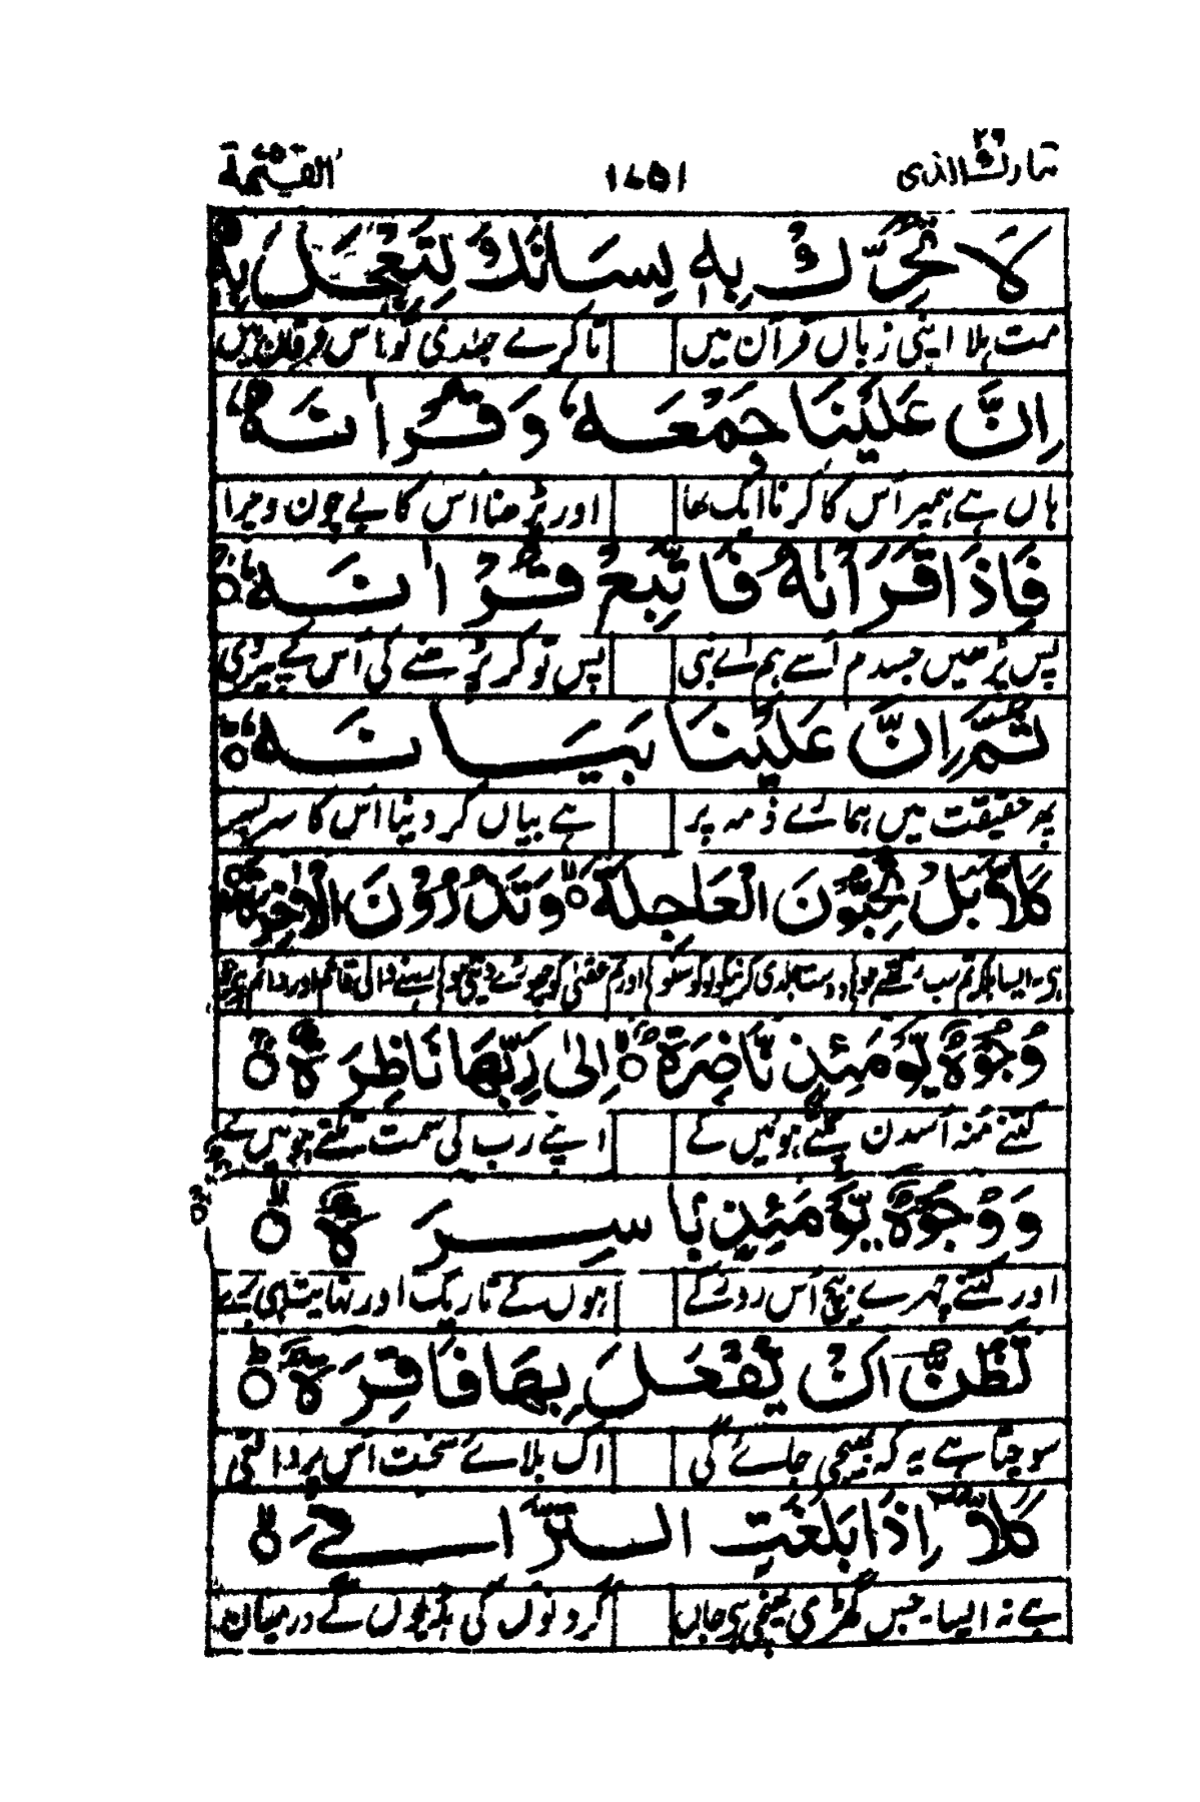 تبارك الذی ٢٩ ١٤٥١ القیٰمة ٧٥
لَا تُحَرِّكْ بِهٖ لِسَانَكَ لِتَعْجَلَ بِهٖ
مت ہلا اپنی زباں قرآن میں تا کرے جلدی تو اس فرقان میں
اِنَّ عَلَيْنَا جَمْعَهٗ وَقُرْاٰنَهٗ
ہاں ہے ہمپر اس کا کرنا ایک جا اور پڑھنا اس کا بے چون و چرا
فَاِذَا قَرَاْنٰهُ فَاتَّبِعْ قُرْاٰنَهٗ
پس پڑھیں جسدم اُسے ہم اے نبی پس تو کر پڑھنے کی اُس کے پیروی
ثُمَّ اِنَّ عَلَيْنَا بَيَانَهٗ
پھر حقیقت میں ہمارے ذمہ پر ہے بیاں کر دینا اُس کا سر بسر
كَلَّا بَلْ تُحِبُّوْنَ الْعَاجِلَةَ وَتَذَرُوْنَ الْاٰخِرَةَ
اور تم عقبیٰ کو چھوڑے دیتے ہو رہنے والی قائم اور دائم
وُجُوْهٌ يَّوْمَئِذٍ نَّاضِرَةٌ اِلٰى رَبِّهَا نَاظِرَةٌ
کتنے منہ اُسدن ہوئیں گے اپنے رب کی سمت تکتے ہوئیں گے
وَوُجُوْهٌ يَّوْمَئِذٍۭ بَاسِرَةٌ
اور کتنے چہرے بیچ اُس روز کے ہوں گے تاریک اور نہایت ہی بُرے
تَظُنُّ اَنْ يُّفْعَلَ بِهَا فَاقِرَةٌ
سوچتا ہے یہ کہ بھیجی جاے گی اک بلاے سخت اُس پر واقعی
كَلَّا اِذَا بَلَغَتِ التَّرَاقِيَ
ہے نہ ایسا جس گھڑی پہنچی ہی جاں گردنوں کی ہڈیوں کے درمیاں